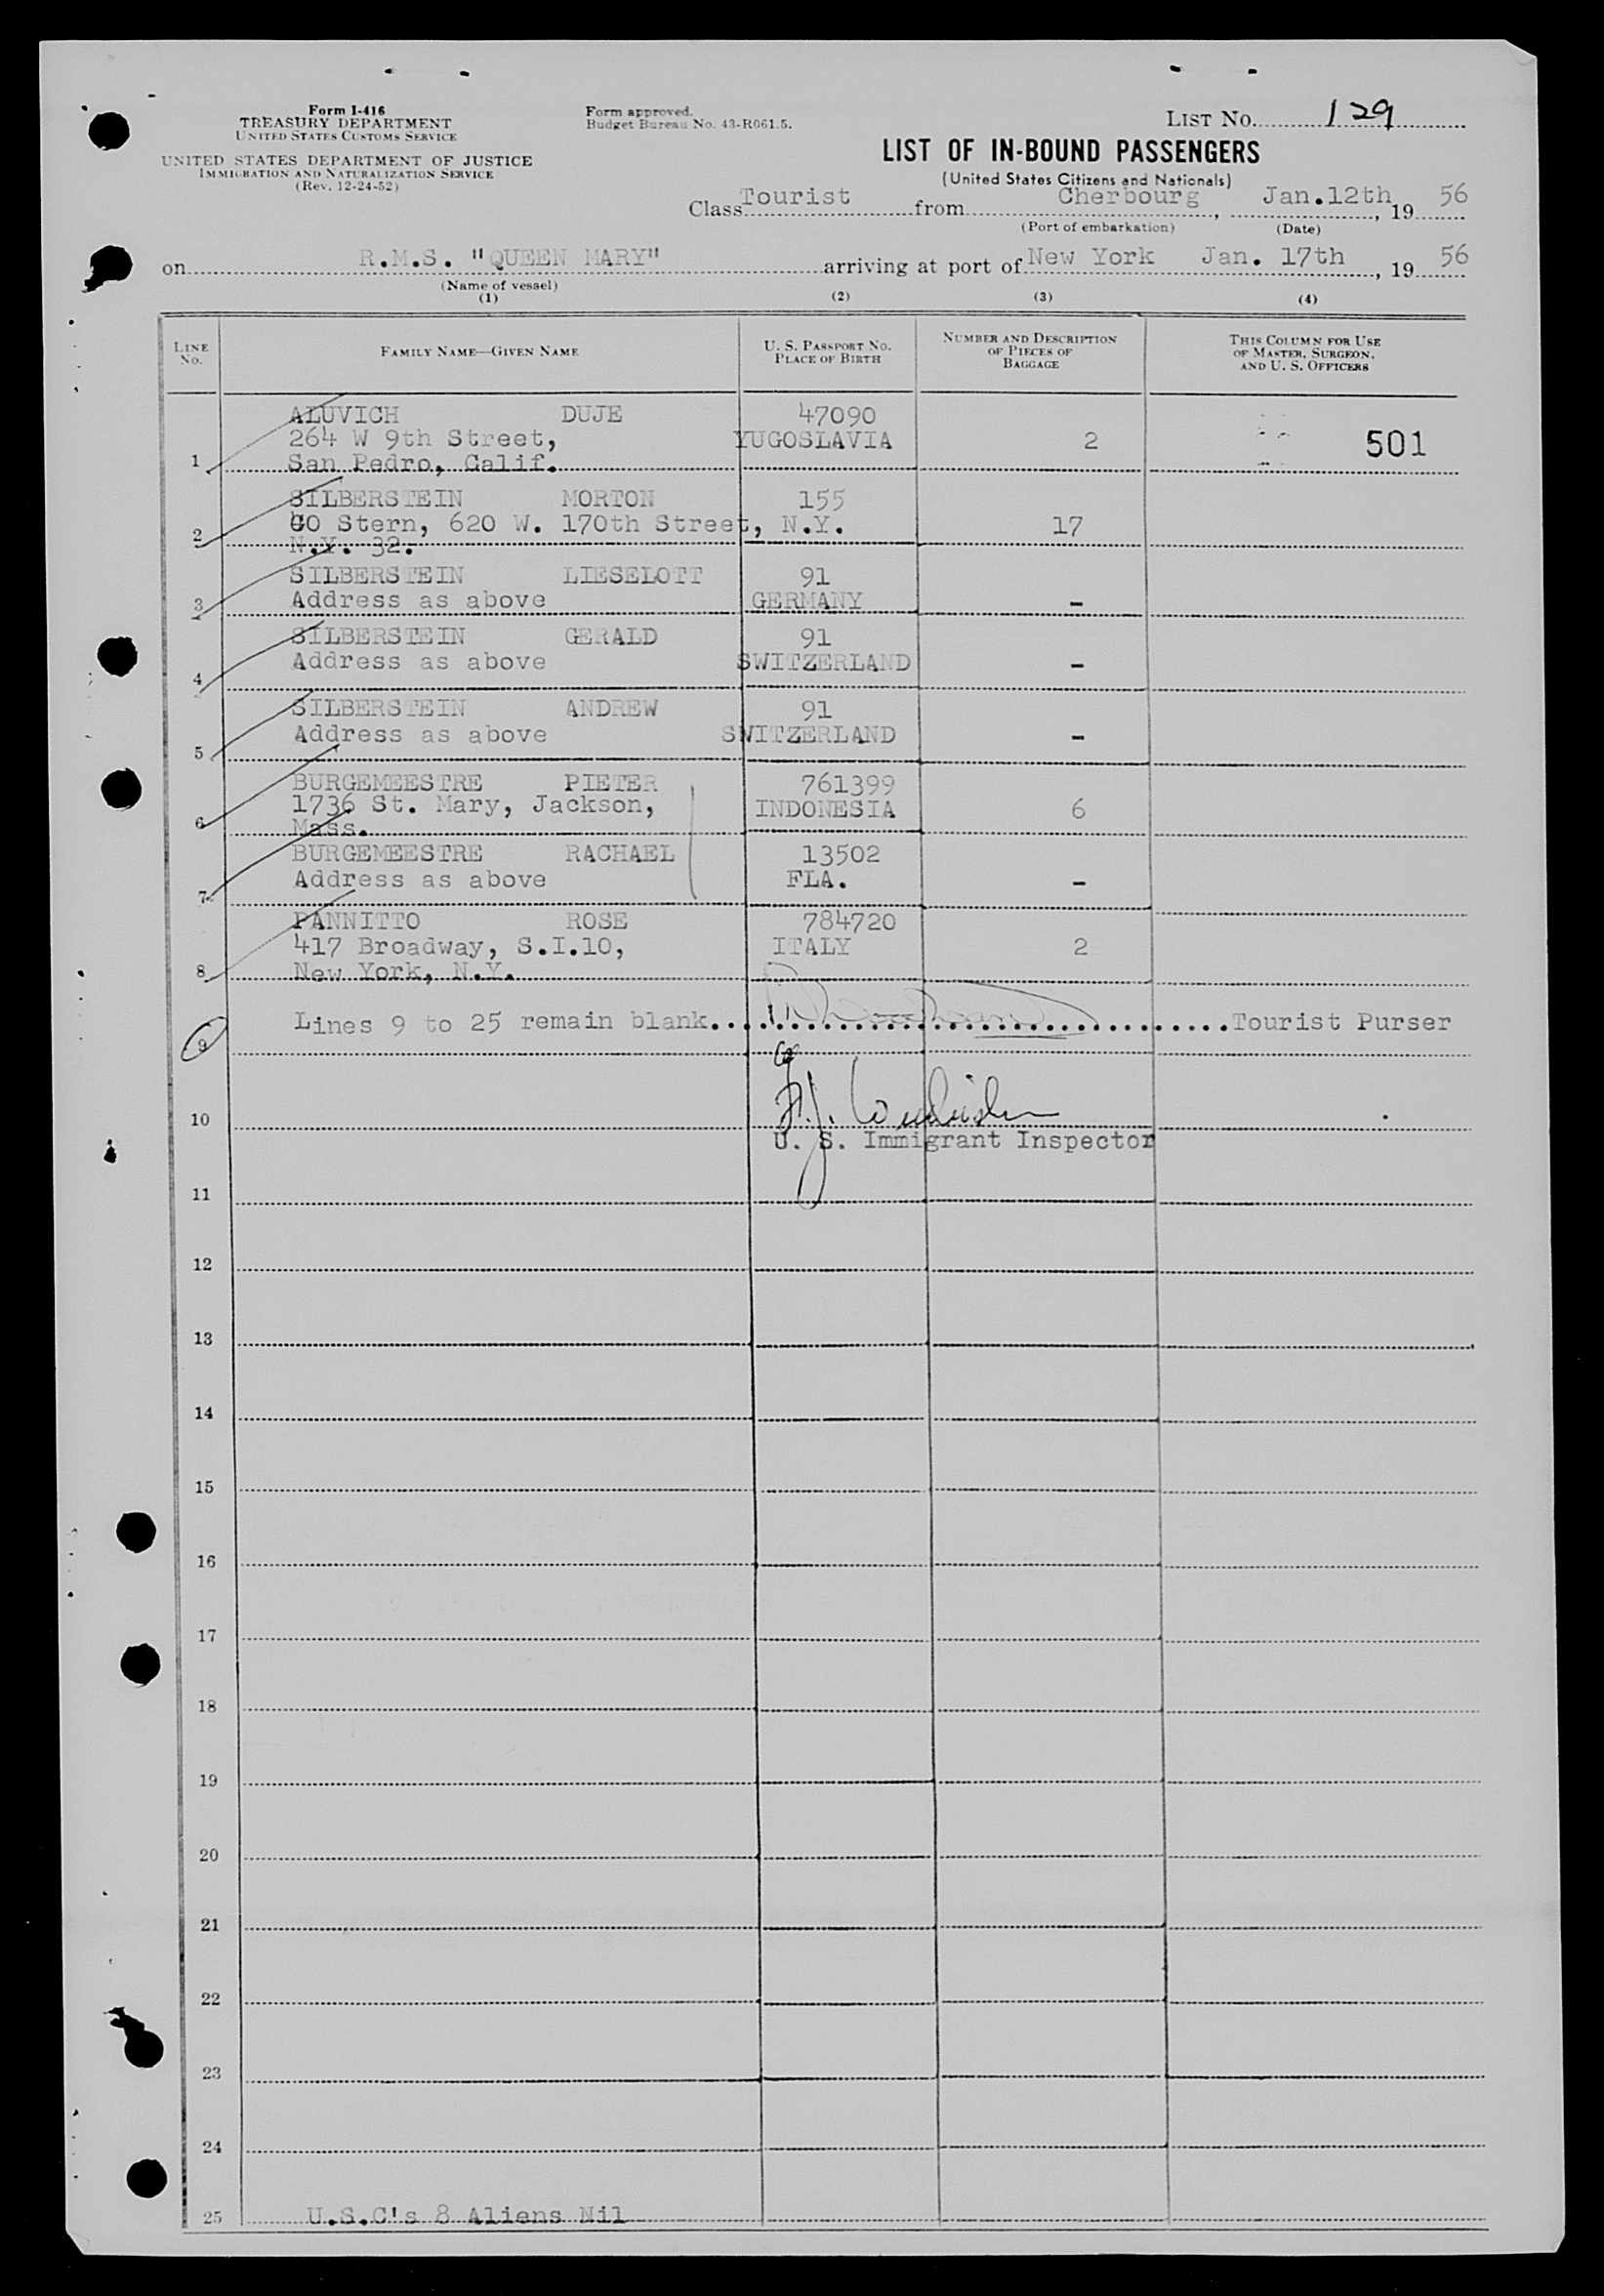 Form I-416
TREASURY DEPARTMENT
UNITED STATES CUSTOMS SERVICE
UNITED STATES DEPARTMENT OF JUSTICE
IMMIGRATION AND NATURALIZATION SERVICE
(Rev. 12-24-52)
Form approved.
Budget Bureau No. 43-R061.5.
LIST NO. 129
LIST OF IN-BOUND PASSENGERS
(United States Citizens and Nationals)
Class Tourist from Cherbourg, Jan.12th, 19 56
(Port of embarkation) (Date)
on R.M.S. "QUEEN MARY" arriving at port of New York Jan. 17th, 19 56
(Name of vessel)
(1) (2) (3) (4)
LINE NO. FAMILY NAME—GIVEN NAME U. S. PASSPORT NO. PLACE OF BIRTH NUMBER AND DESCRIPTION OF PIECES OF BAGGAGE THIS COLUMN FOR USE OF MASTER, SURGEON, AND U. S. OFFICERS
ALUVICH DUJE 47090
264 W 9th Street, YUGOSLAVIA 2 501
1 San Pedro, Calif.
SILBERSTEIN MORTON 155
2 Stern, 620 W. 170th Street, N.Y. 17
N.Y. 32.
SILBERSTEIN LIESELOTT 91
3 Address as above GERMANY -
SILBERSTEIN GERALD 91
4 Address as above SWITZERLAND -
SILBERSTEIN ANDREW 91
5 Address as above SWITZERLAND -
BURGEMEESTRE PIETER 761399
6 1736 St. Mary, Jackson, INDONESIA 6
Mass.
BURGEMEESTRE RACHAEL 13502
7 Address as above FLA. -
PANNITTO ROSE 784720
417 Broadway, S.I.10, ITALY 2
8 New York, N.Y.
Lines 9 to 25 remain blank.......Tourist Purser
9
10
U. S. Immigrant Inspector
11
12
13
14
15
16
17
18
19
20
21
22
23
24
25 U.S.C's 8 Aliens Nil